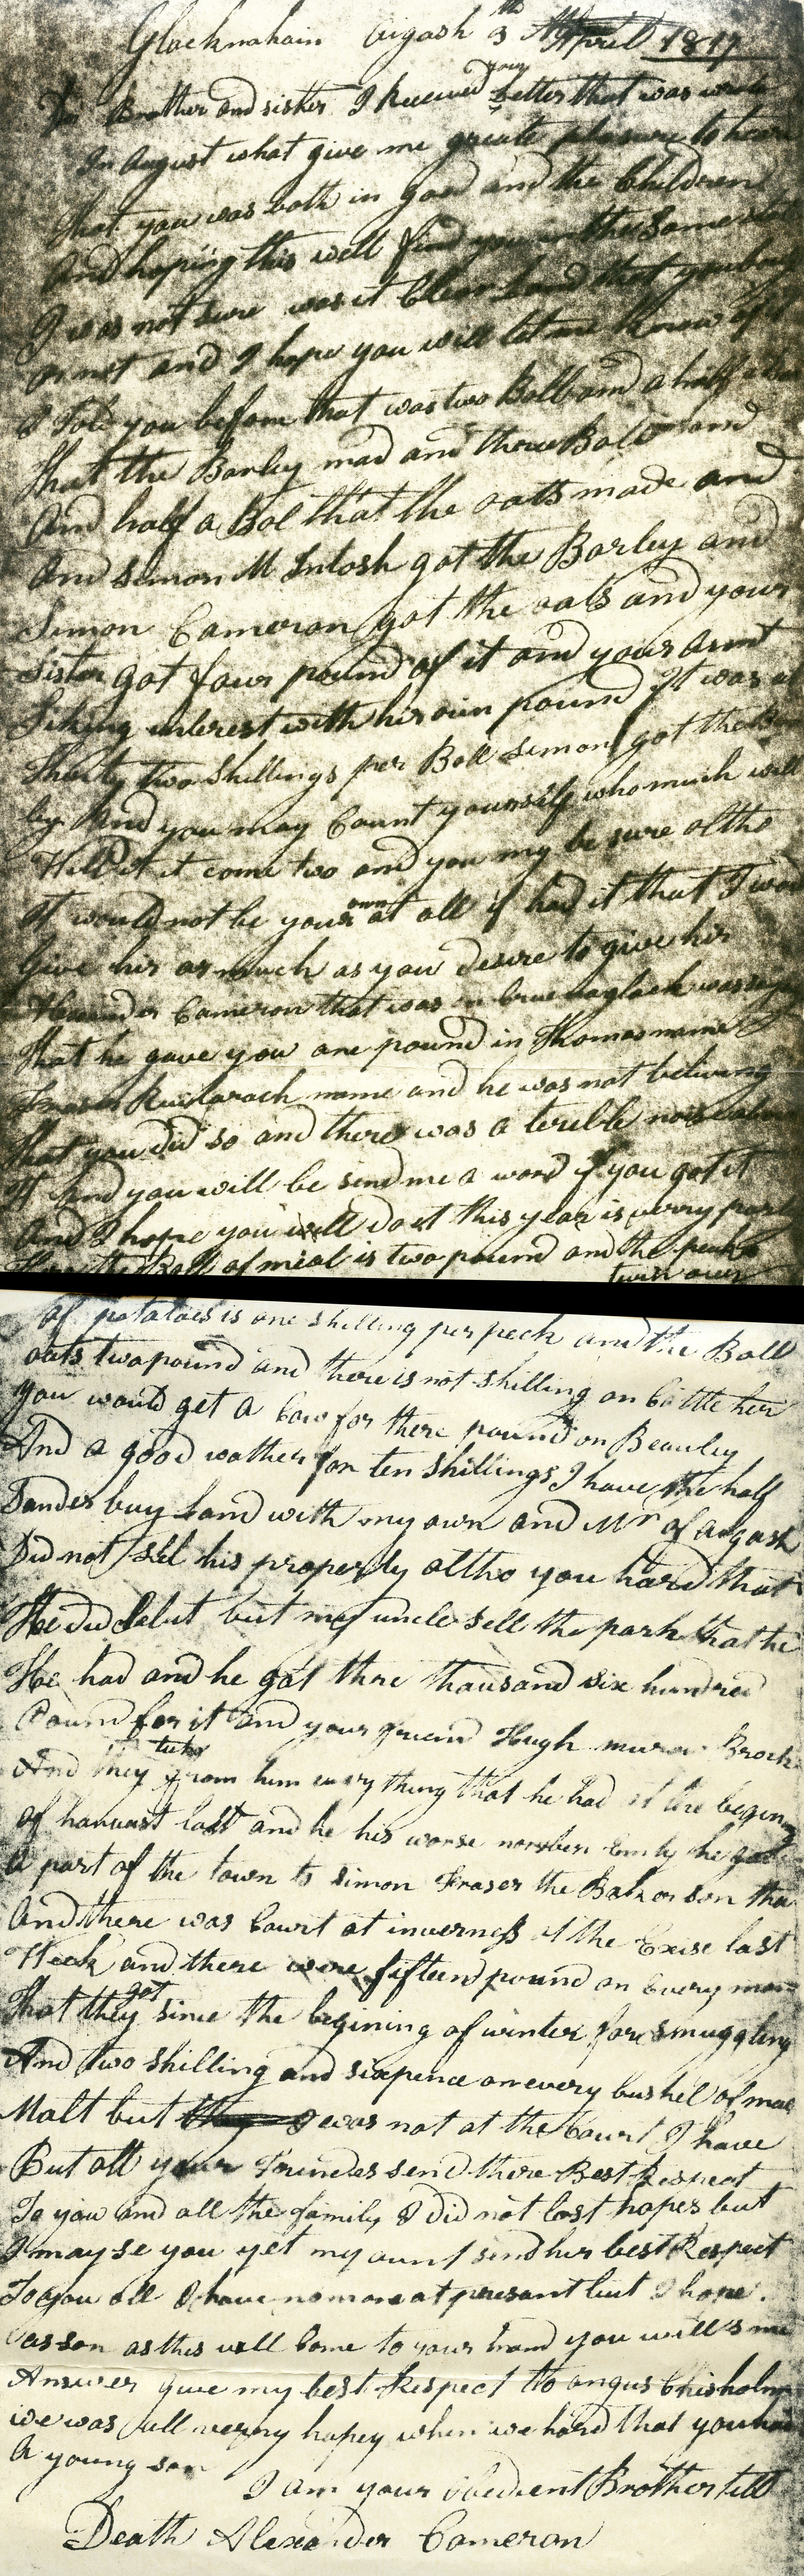 Glacknahain Aigash 3th April 1817
Dr Brother and sister I Received your Letter that was wrote
In August what give me greate pleasure to hear
That you was both in good and the Children
And hoping this well find you in the same state
I was not sure was it Clear Land that you bought
or not and I hope you will let me know if
I Told you before that was two Boll and a half
that the Barley mad and three Bolls and
And half a Bol that the oats made and
And Simon M Intosh got the Barley and
Simon Cameron got the oats and your
Sister got four pound of it and your aunt
Taking interest with his oun pound It was at
Thirty two shillings per Boll Simon got the Bar
ley And you may Count yourself who much will
it come two and you my be sure altho
It would not be your own at all if had it that I would
Give his as much as you desire to give his
Alexander Cameron that was in was
That he gave you one pound in Thomas name
Fraser name and he was not beliving
That you did so and there was a terible nois about
It And you will be send me a word if you got it
And I hope you will do it this year is verry
Here the Boll of meal is two pound and the pecks
twin over
of potatoes is one shilling per peck and the Boll
oats two pound and there is not shilling on Cattle her
you would get a Cow for there pound on Beauley
And a good wather for ten shillings I have the half
Sander buy Land with my own and Mr of Aigash
Did not sel his property altho you hard that
He did but my uncle sell the park that he
He had and he got thre thousand six hundred
Pound for it and your friend Hugh
And they tuke from him every thing that he had at the begining
of harvast last and he his worse he gave
a part of the town to Simon Fraser the son
And there was Court at inverness at the Exise last
Week and there were fifteen pound on Every man
That they got since the begining of winter fore smuggling
And two shilling and sixpence on every bushel of
Malt but I was not at the Court I have
But all your Friendes send there Best Respeat
To you and all the family I did not lost hopes but
I may se you yet my aunt send her best Respect
To you all I have no more at presant but I hope
as son as this will Come to your hand you will me
Answer give my best Respect to angus Chisholm
we was all verry hapey when we hard that you had
A young son
I am your obedient Brother till
Death Alexander Cameron